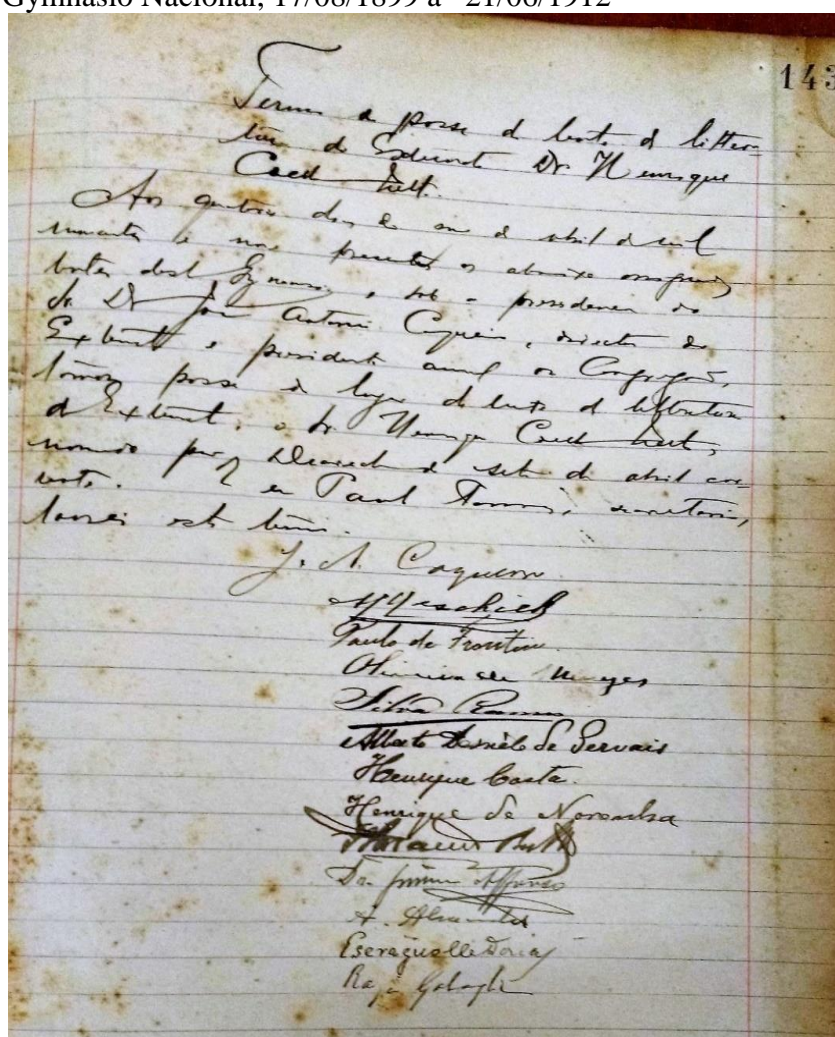 Gymnasio Nacional, 17/08/1899 a 21/06/1912
143
Termo de posse do lente de littera-
tura do Externato Dr. Henrique
Coelho Netto.
Aos quatorze dias do mez de abril de mil
novecentos e nove presentes os abaixo assignados
lentes deste Gymnasio, e sob a presidencia do
Sr. Dr. João Antonio Coqueiro, director do
Externato e presidente annual da Congregação,
tomou posse do lugar de lente de litteratura
do Externato, o Sr. Henrique Coelho Netto,
nomeado por Decreto de sete de abril cor-
rente. E eu Paulo Tavares, secretario,
lavrei este termo.
J. A. Coqueiro
Paulo de Frontin.
Menezes
Silva Ramos
Alberto de Gervais
Henrique Costa.
Henrique de Noronha
Dr. Affonso
A.
Escragnolle Doria
Raja Gabaglia